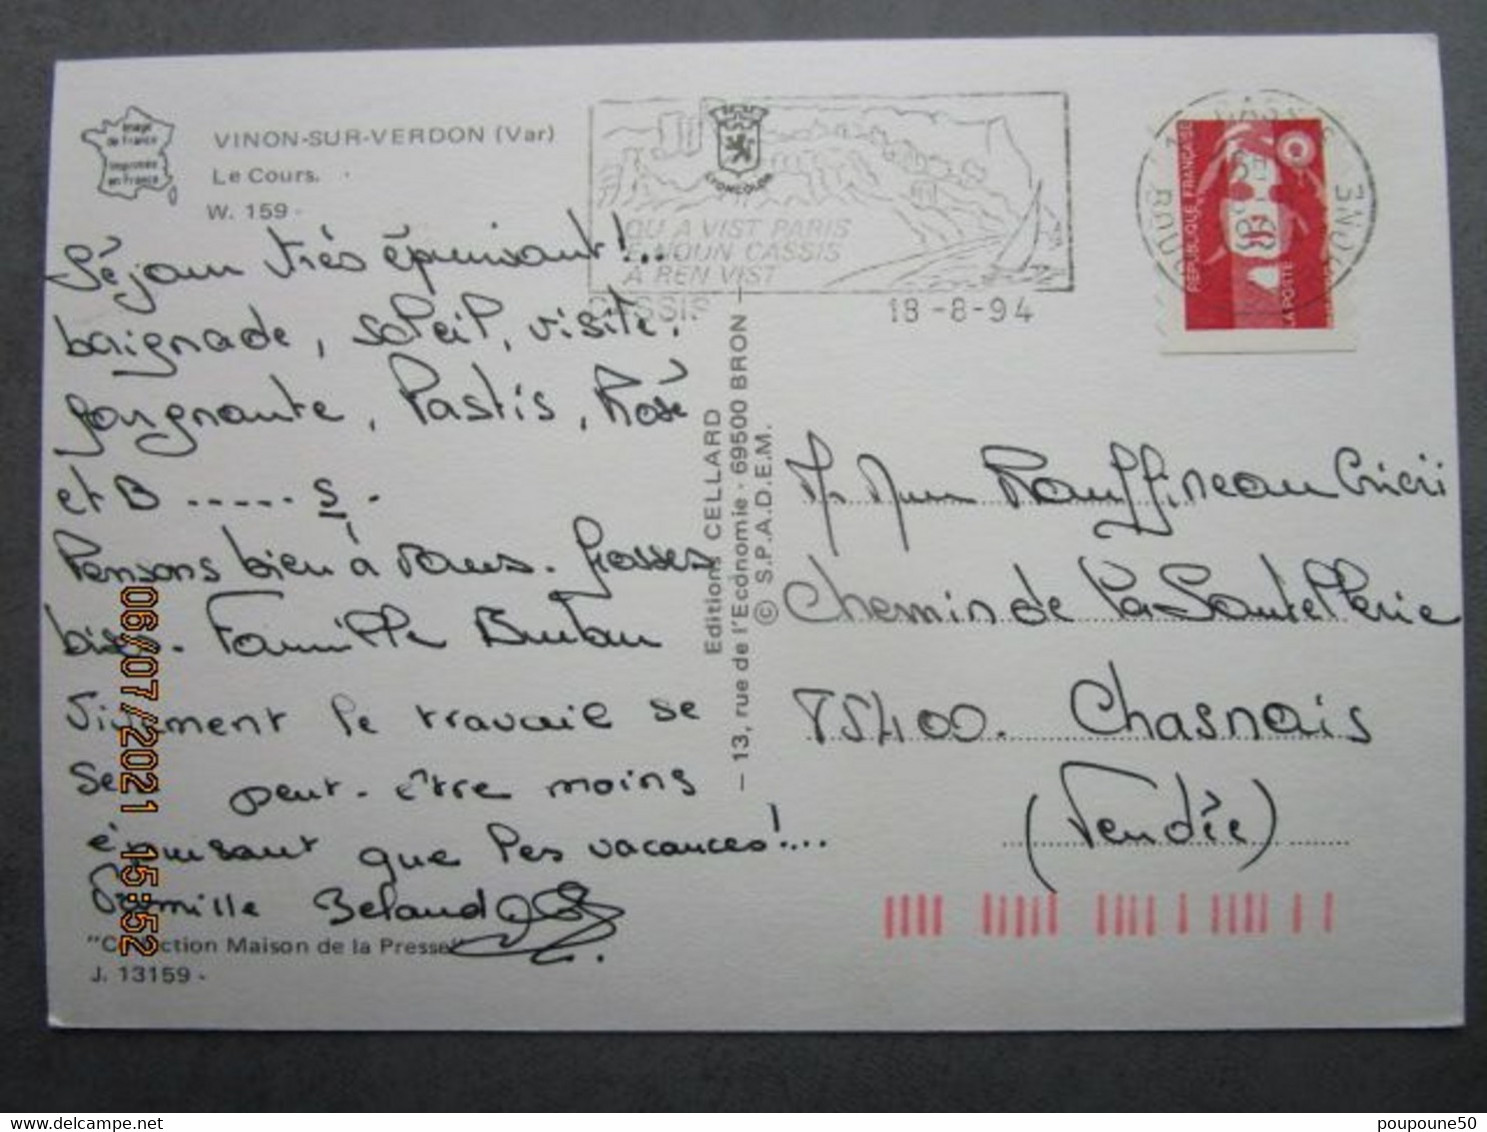 Image
de France
Imprimée
en France
VINON-SUR-VERDON (Var)
Le Cours.
W. 159 -
Séjour très épuisant!...
baignade, soleil, visite,
Pastis, Rosé
et B ..... s.
Pensons bien à vous. Grosses
bises. Famille
Vivement le travail se
se peut-être moins
épuisant que les vacances!...
Famille Belaud
"Collection Maison de la Presse"
J. 13159 -
Editions CELLARD
- 13, rue de l'Economie - 69500 BRON -
© S.P.A.D.E.M.
LYONCOLOR
QU A VIST PARIS
E NOUN CASSIS
A REN VIST
CASSIS
18-8-94
RÉPUBLIQUE FRANÇAISE
LA POSTE
Mr Mme Rouffineau
Chemin de la
85400. Chasnais
(Vendée)
06/07/2021 15:52
poupoune50